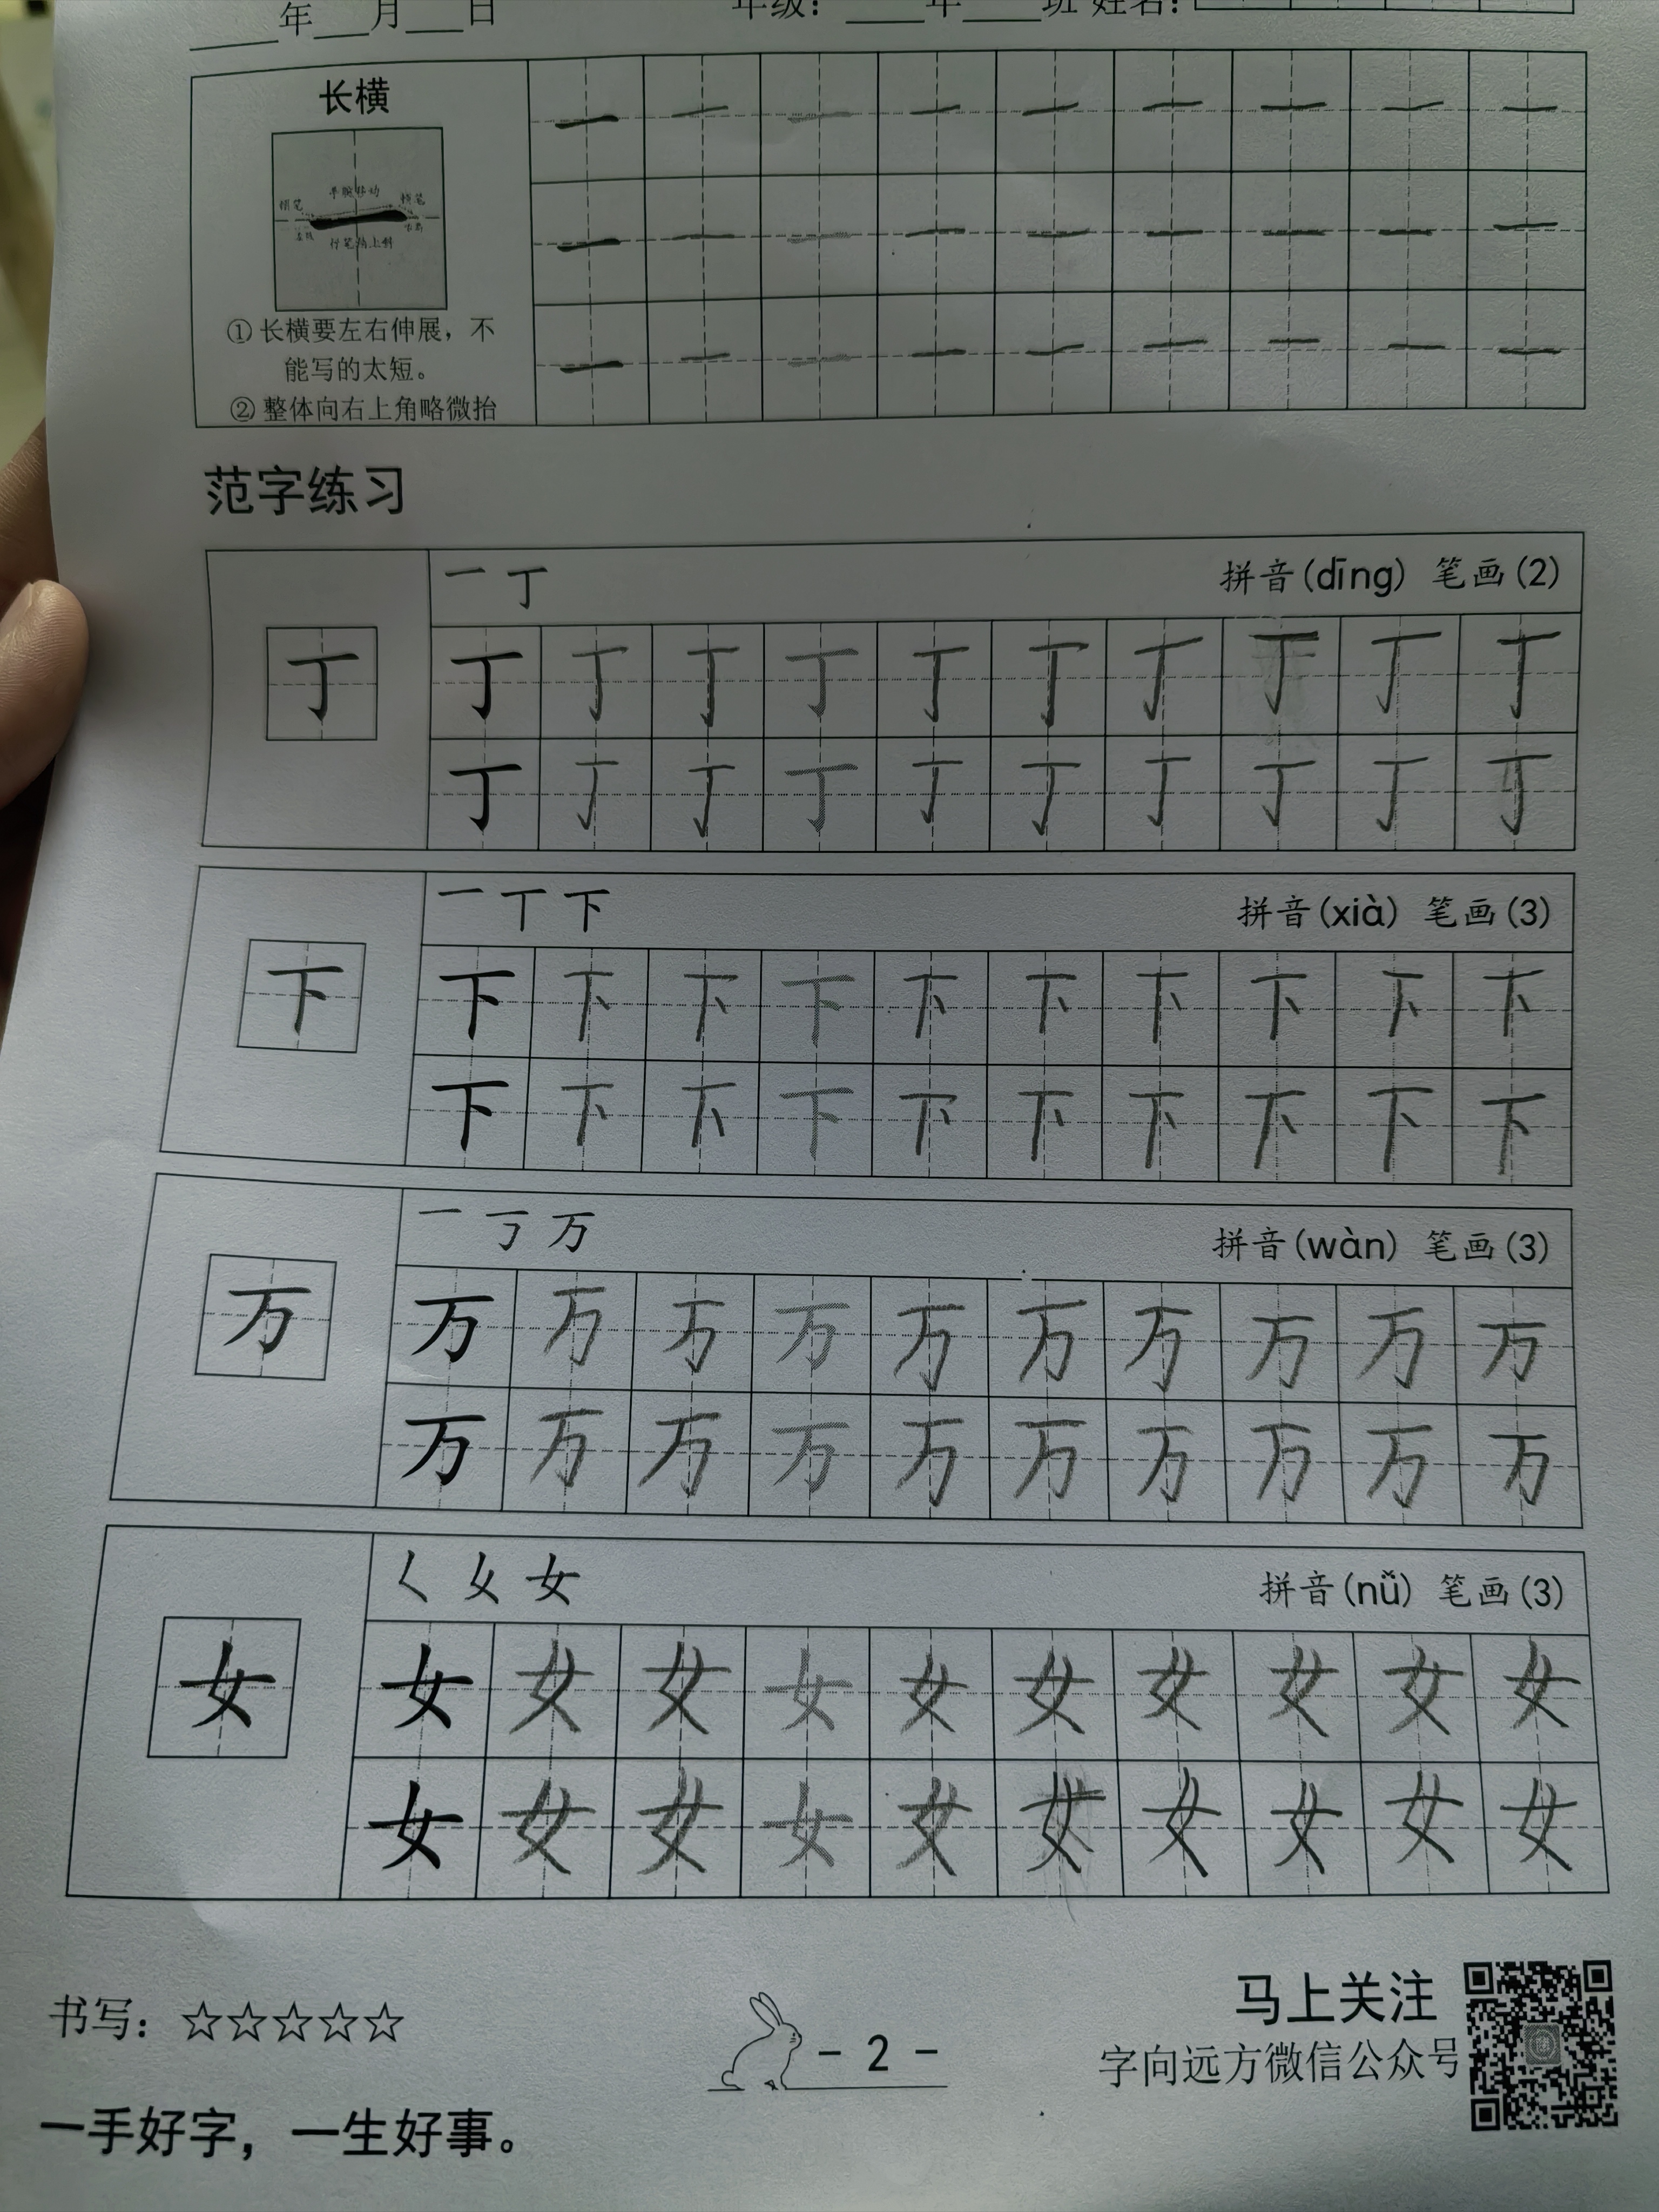 ____年___月___日 年级：____年____班 姓名：
长横
手腕移动
顿笔 顿笔
行笔略上斜
① 长横要左右伸展，不
能写的太短。
② 整体向右上角略微抬
一 一 一 一 一 一 一 一 一
一 一 一 一 一 一 一 一 一
一 一 一 一 一 一 一 一 一
范字练习
一 丁 拼音(dīng) 笔画(2)
丁
丁 丁 丁 丁 丁 丁 丁 丁 丁 丁
丁 丁 丁 丁 丁 丁 丁 丁 丁 丁
一 丅 下 拼音(xià) 笔画(3)
下
下 下 下 下 下 下 下 下 下 下
下 下 下 下 下 下 下 下 下 下
一 丂 万 拼音(wàn) 笔画(3)
万
万 万 万 万 万 万 万 万 万 万
万 万 万 万 万 万 万 万 万 万
𡿨 女 拼音(nǚ) 笔画(3)
女
女 女 女 女 女 女 女 女 女 女
女 女 女 女 女 女 女 女 女 女
书写：☆☆☆☆☆
- 2 -
马上关注
字向远方微信公众号
一手好字，一生好事。